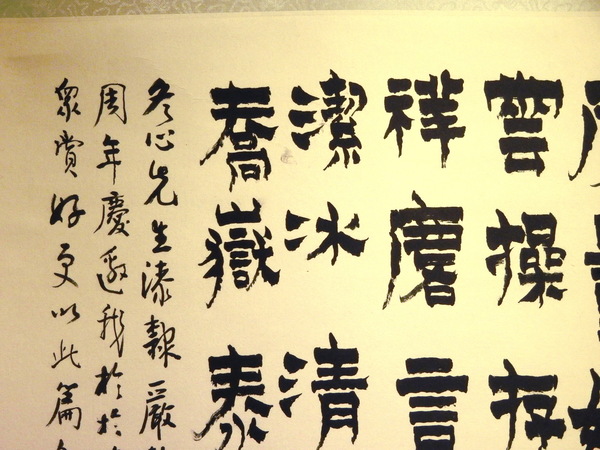 雲操存
祥麐言
潔冰清
喬嶽泰
冬心先生漆隸嚴
周年慶邀我於
眾賞好更以此篇